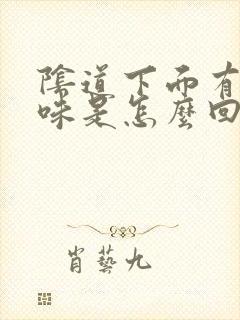 陰道下面有
味是怎麼回
肖藝九